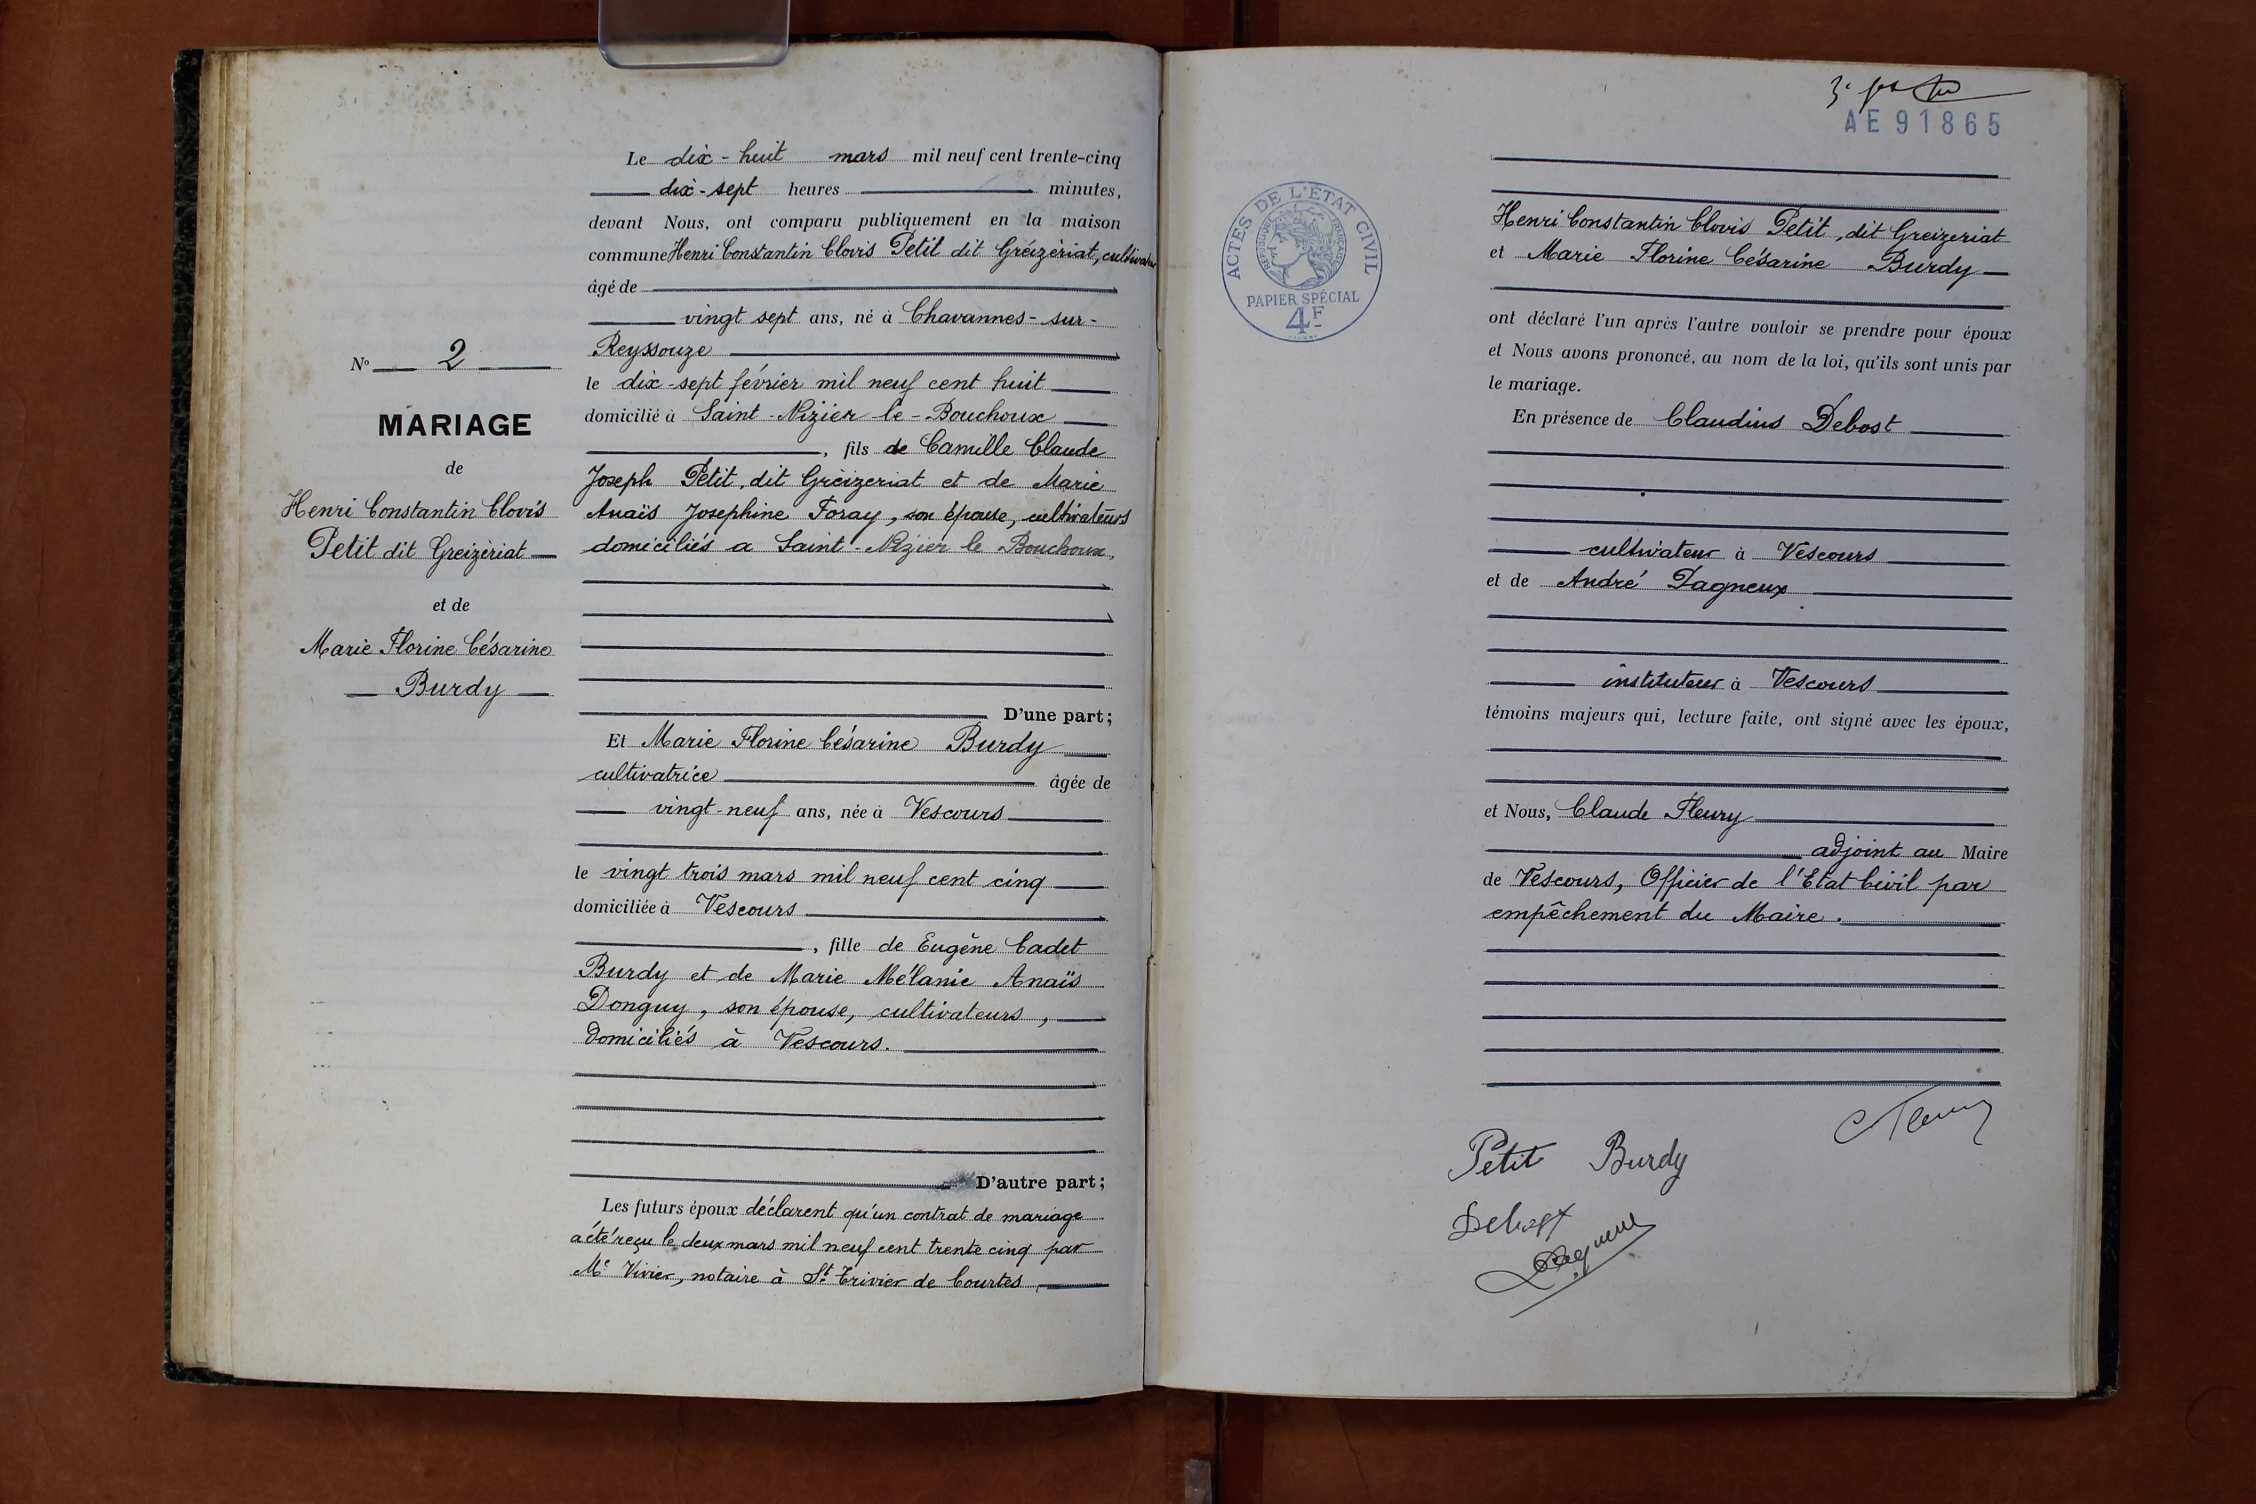 N° 2
MARIAGE
de
Henri Constantin Clovis
Petit dit Greizèriat
et de
Marie Florine Césarine
Burdy
Le dix-huit mars mil neuf cent trente-cinq
dix-sept heures minutes,
devant Nous, ont comparu publiquement en la maison
commune Henri Constantin Clovis Petit dit Gréizèriat, cultivateur
âgé de
vingt sept ans, né à Chavannes-sur-
Reyssouze
le dix-sept février mil neuf cent huit
domicilié à Saint-Nizier le-Bouchoux
, fils de Camille Claude
Joseph Petit, dit Grèizeriat et de Marie
Anaïs Josephine Foray, son épouse, cultivateurs
domiciliés a Saint-Nizier le Bouchoux,
D'une part;
Et Marie Florine Césarine Burdy
cultivatrice âgée de
vingt-neuf ans, née à Vescours
le vingt trois mars mil neuf cent cinq
domiciliée à Vescours
, fille de Eugène Cadet
Burdy et de Marie Mélanie Anaïs
Donguy, son épouse, cultivateurs,
domiciliés à Vescours.
D'autre part;
Les futurs époux déclarent qu'un contrat de mariage
a été reçu le deux mars mil neuf cent trente cinq par
Me Vivier, notaire à St Trivier de Courtes
AE91865
ACTES DE L'ETAT CIVIL
REPUBLIQUE FRANÇAISE
PAPIER SPÉCIAL
4F
Henri Constantin Clovis Petit, dit Greizeriat
et Marie Florine Césarine Burdy
ont déclaré l'un après l'autre vouloir se prendre pour époux
et Nous avons prononcé, au nom de la loi, qu'ils sont unis par
le mariage.
En présence de Claudius Debost
cultivateur à Vescours
et de André Pagneux
instituteur à Vescours
témoins majeurs qui, lecture faite, ont signé avec les époux,
et Nous, Claude Fleury
adjoint au Maire
de Vescours, Officier de l'Etat Civil par
empêchement du Maire.
C Fleury
Petit Burdy
Debost
Pagneux